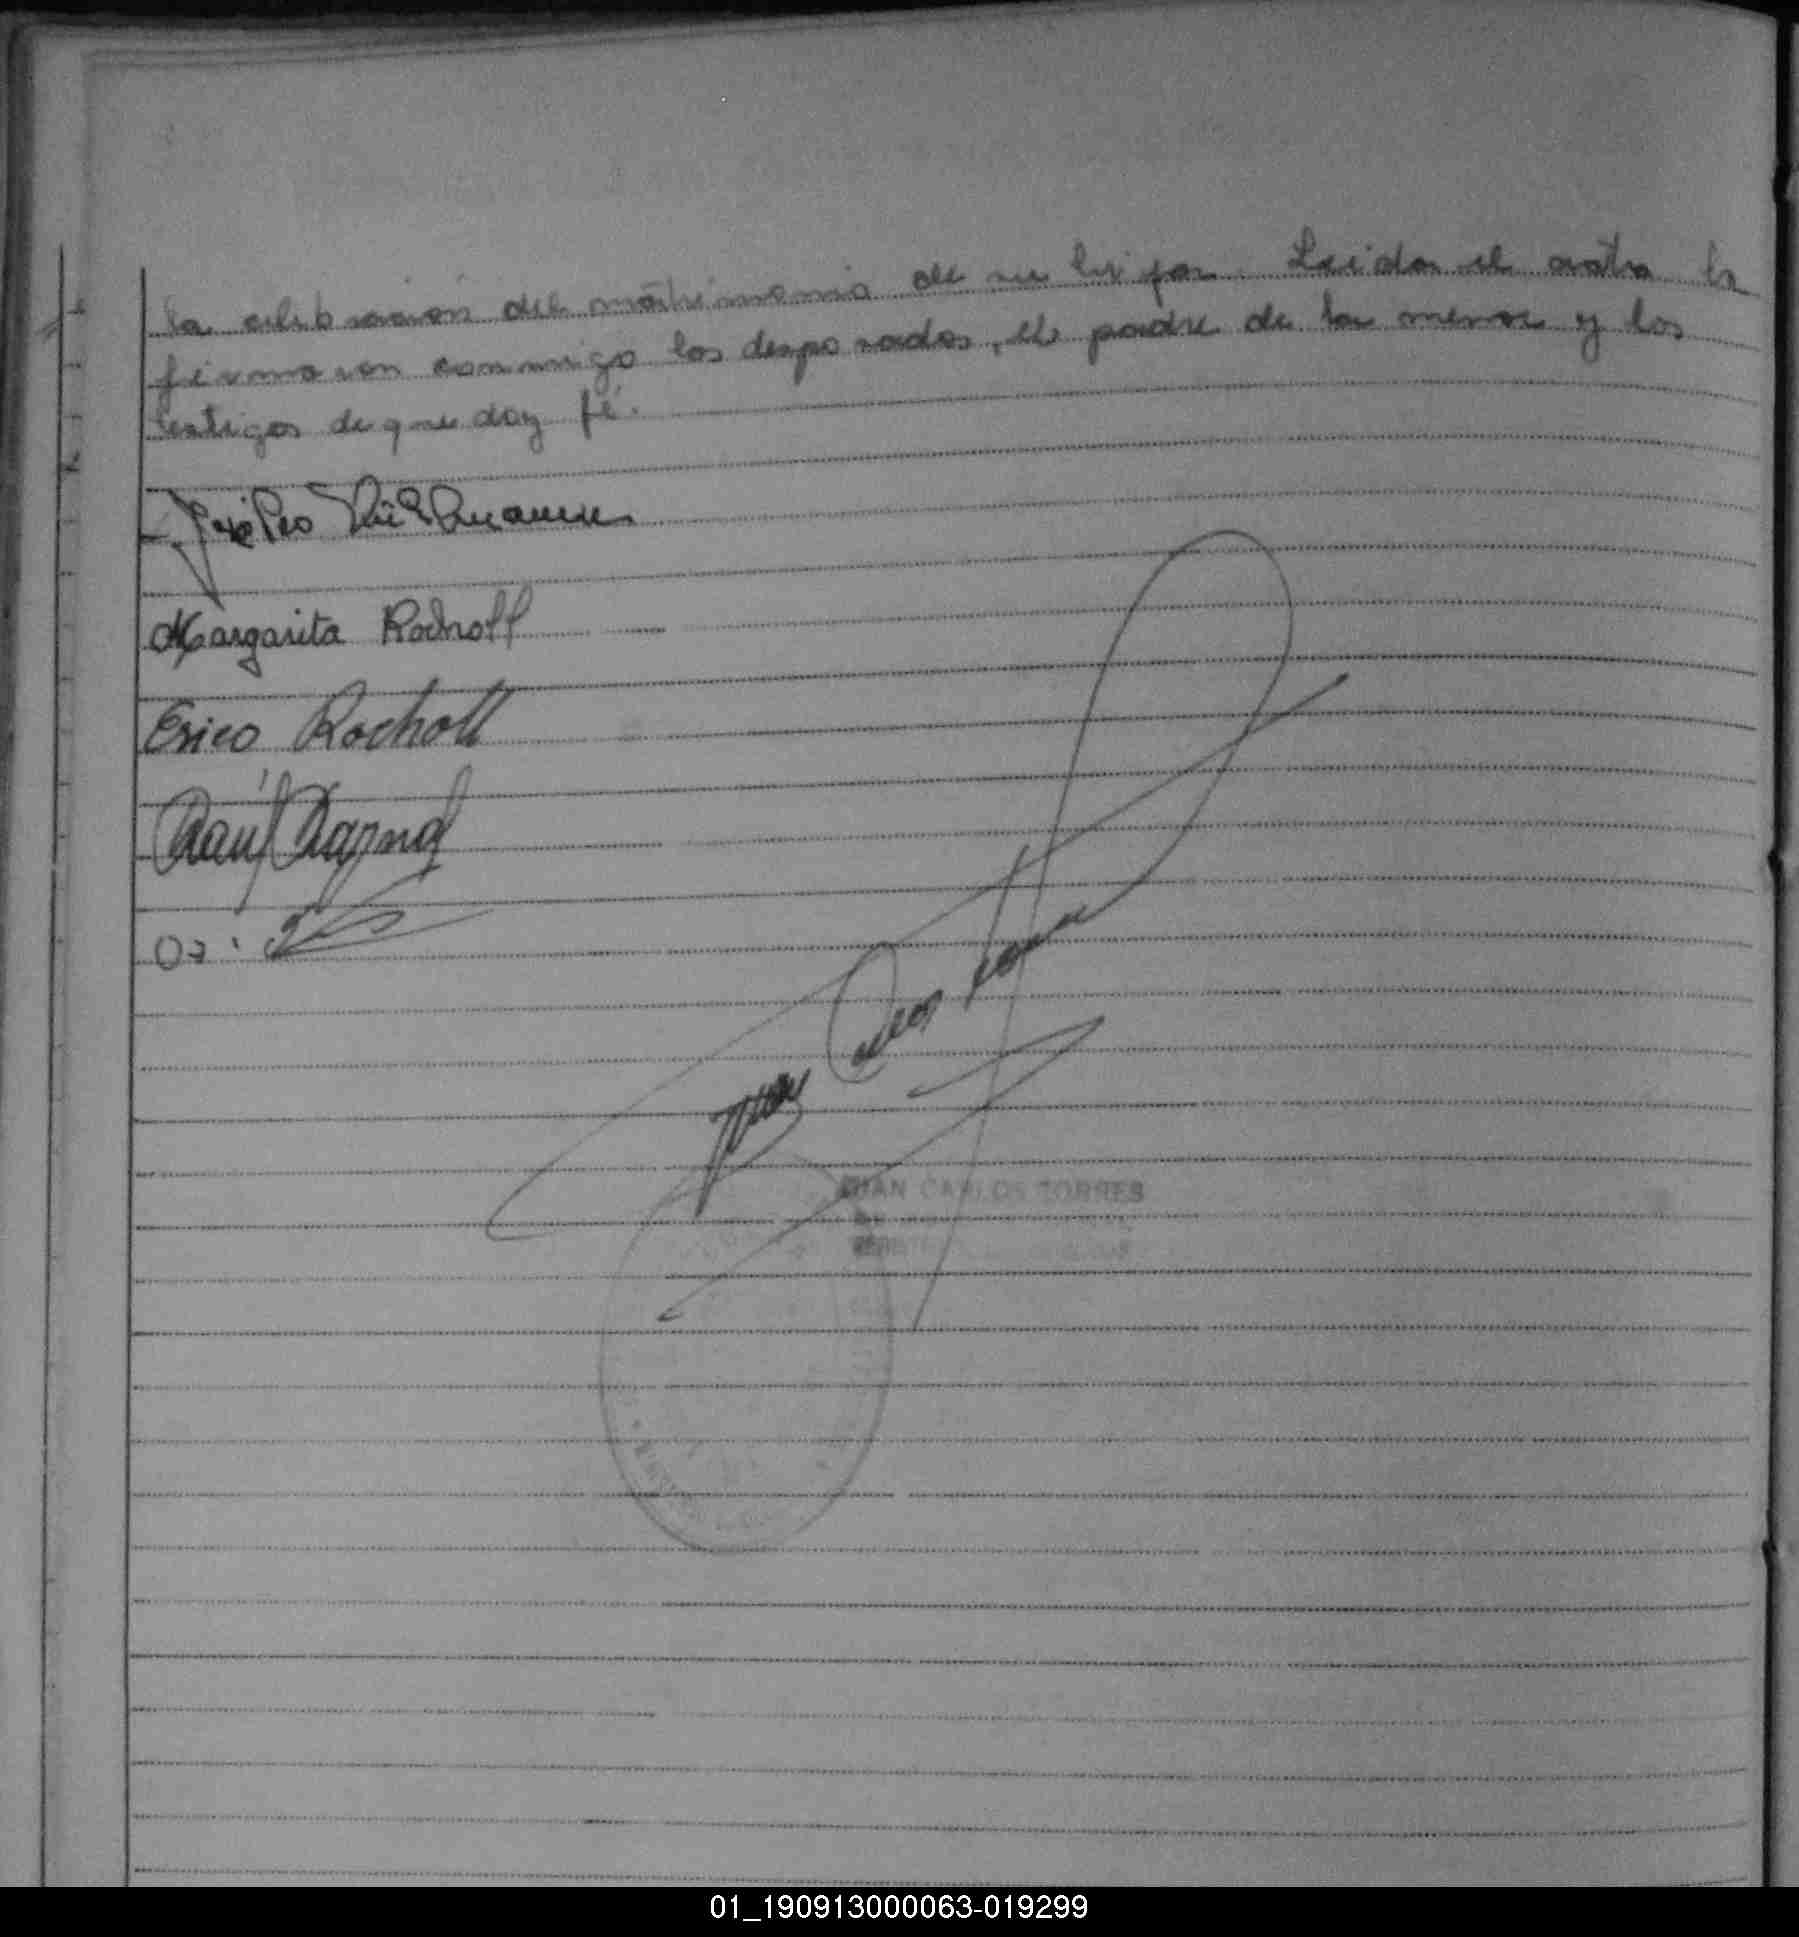 la celebración del matrimonio de su hija. Leida el acta la
firmaron conmigo los desposados, el padre de la menor y los
testigos de que doy fé.
José Pio
Margarita Rocholl
Erico Rocholl
Raúl
Juan Carlos Torres
JUAN CARLOS TORRES
01_190913000063-019299